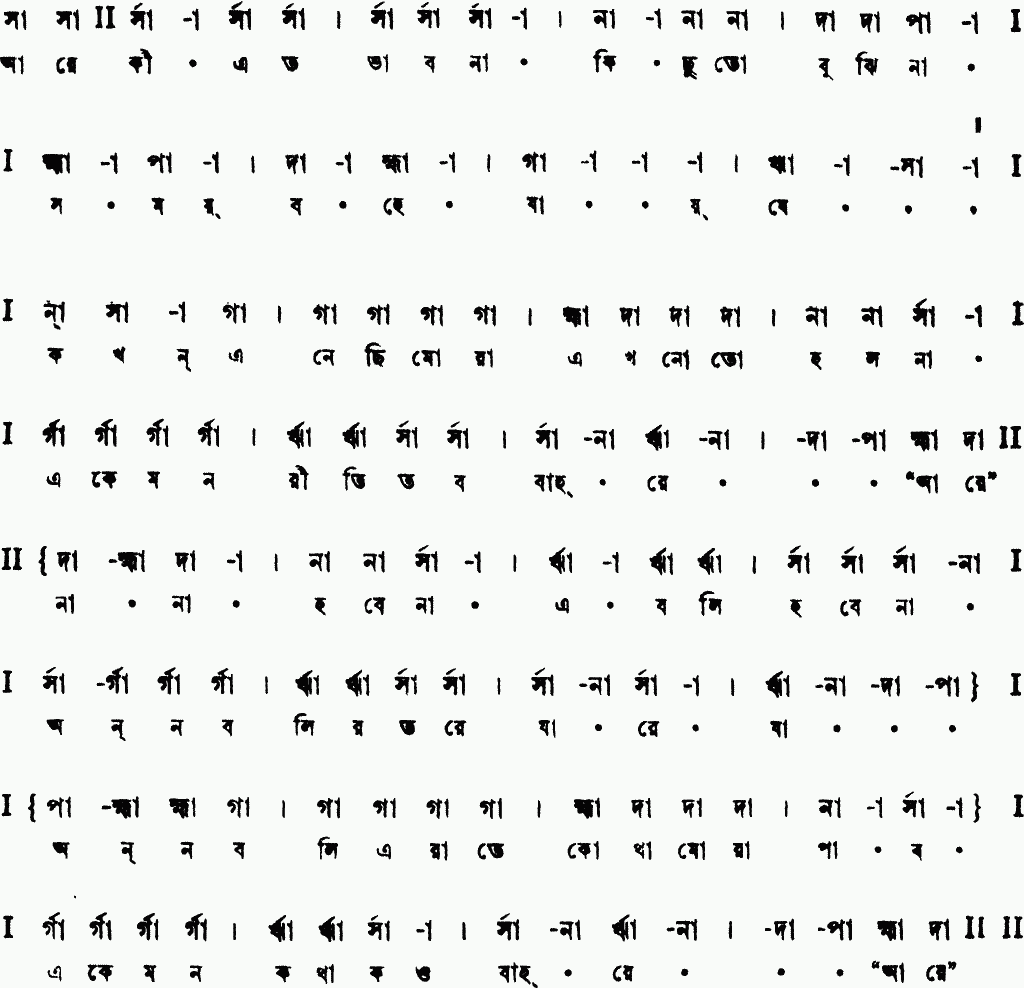 সা সা II র্সা -া র্সা র্সা । র্সা র্সা র্সা -া । না -া না না । দা দা পা -া I
আ রে কী • এ ত ভা ব না • কি • ছু তো বু ঝি না •
I হ্মা -া পা -া । দা -া হ্মা -া । গা -া -া -া । ঋা -া -সা -া I
স • ম য়্ ব • হে • যা • • য়্ যে • • •
I ন্া সা -া গা । গা গা গা গা । হ্মা দা দা দা । না না র্সা -া I
ক খ ন্ এ নে ছি মো রা এ খ নো তো হ ল না •
I র্গা র্গা র্গা র্গা । র্ঋা র্ঋা র্সা র্সা । র্সা -না র্ঋা -না । -দা -পা হ্মা দা II
এ কে ম ন রী তি ত ব বাহ্ • রে • • • “আ রে”
II { দা -হ্মা দা -া । না না র্সা -া । র্ঋা -া র্ঋা র্ঋা । র্সা র্সা র্সা -না I
না • না • হ বে না • এ • ব লি হ বে না •
I র্সা -র্গা র্গা র্গা । র্ঋা র্ঋা র্সা র্সা । র্সা -না র্সা -া । র্ঋা -না -দা -পা } I
অ ন্ ন ব লি র ত রে যা • রে • যা • • •
I { পা -হ্মা হ্মা গা । গা গা গা গা । হ্মা দা দা দা । না -া র্সা -া } I
অ ন্ ন ব লি এ রা তে কো থা মো রা পা • ব •
I র্গা র্গা র্গা র্গা । র্ঋা র্ঋা র্সা -া । র্সা -না র্ঋা -না । -দা -পা হ্মা দা II II
এ কে ম ন ক থা ক ও বাহ্ • রে • • • “আ রে”